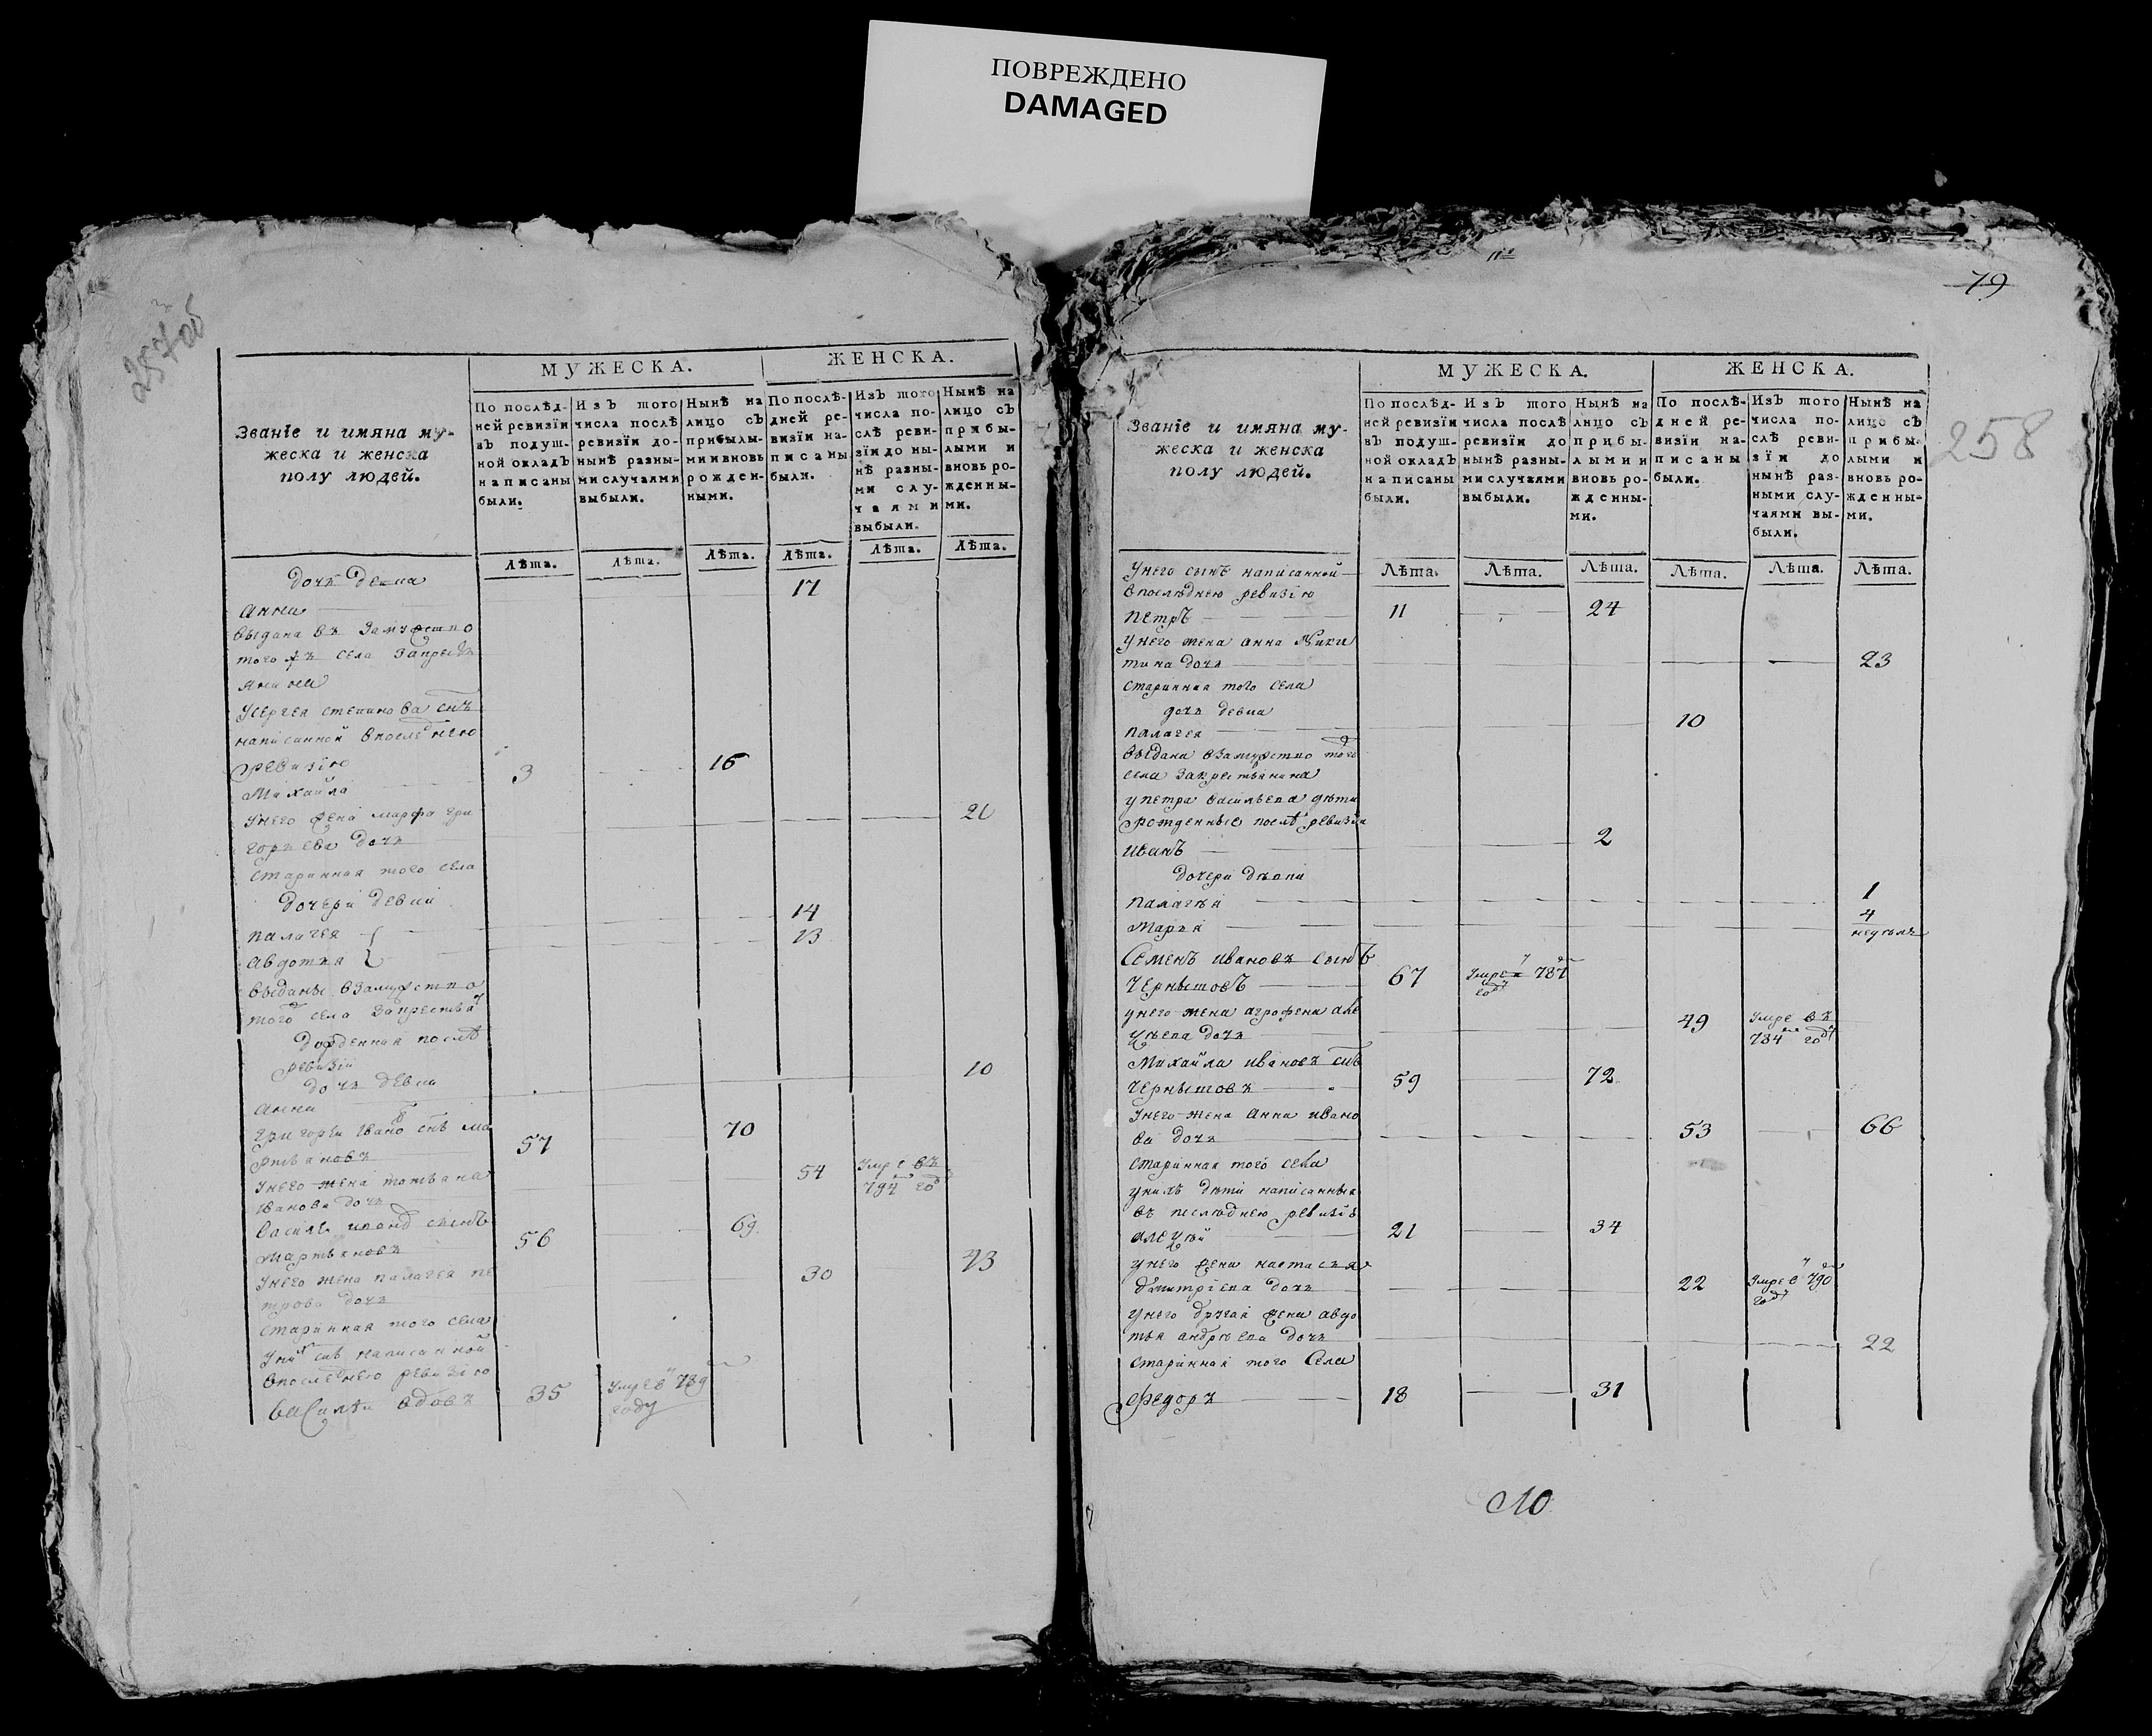 ПОВРЕЖДЕНО
DAMAGED
257 об
МУЖЕСКА.
ЖЕНСКА.
Званіе и имяна му-
жеска и женска
полу людей.
По послѣд-
ней ревизіи
въ подуш-
ной окладъ
написаны
были.
Изъ того
числа послѣ
ревизіи до-
нынѣ разны-
ми случаями
выбыли.
Нынѣ на
лицо съ
прибылы-
ми и вновь
рожден-
ными.
По послѣ-
дней ре-
визіи на-
писаны
были.
Изъ того
числа по-
слѣ реви-
зіи до ны-
нѣ разны-
ми слу-
чаями
выбыли.
Нынѣ на
лицо съ
прибы-
лыми и
вновь ро-
жденны-
ми.
Лѣта. Лѣта. Лѣта. Лѣта. Лѣта. Лѣта.
дочь девка
анна 17
выдана въ замужство
того жъ села за
усергея степанова снъ
написанной впоследнею
ревизію
Михайла 3 16
унего жена марфа гри
горьева дочь
старинная того села
дочери девки
палагея 14
авдотья 13
выданы взамужство
того села
рожденная послѣ
ревизіи
дочь девка
анна 10
григорей ивано снъ ма
ртьяновъ 57 70
унего жена татьяна
иванова дочь 54 умре въ
794 го
василеи сынъ
мартьяновъ 56 69
унего жена палагея пе
трова дочь 30 43
старинная того села
уних снъ написанной
впоследнею ревизію
василѣи вдовъ 35 умре в 789
году
79
258
МУЖЕСКА.
ЖЕНСКА.
Званіе и имяна му-
жеска и женска
полу людей.
По послѣд-
ней ревизіи
въ подуш-
ной окладъ
написаны
были.
Изъ того
числа послѣ
ревизіи до
нынѣ разны-
ми случаями
выбыли.
Нынѣ на
лицо съ
прибы-
лыми и
вновь ро-
жденны-
ми.
По послѣ-
дней ре-
визіи на-
писаны
были.
Изъ того
числа по-
слѣ реви-
зіи до
нынѣ раз-
ными слу-
чаями вы-
были.
Нынѣ на
лицо съ
прибы-
лыми и
вновь ро-
жденны-
ми.
Лѣта. Лѣта. Лѣта. Лѣта. Лѣта. Лѣта.
унего сынъ написанной
впослѣднею ревизію
петръ 11 24
унего жена анна Ники
тина дочь 23
старинная того села
дочь девка
палагея 10
выдана взамужство того
села закрестьянина
упетра васильева дѣти
рожденные послѣ ревизіи
иванъ 2
дочери дѣвки
палагѣя 1
марья 4
недѣль
Семенъ ивановъ сынъ
Чернышовъ 67 умре в 787
году
унего жена агрофена але
ѯѣева дочь 49 умре въ
784 году
Михайла ивановъ снъ
Чернышовъ 59 72
унего жена анна ивано
ва дочь 53 66
старинная того села
унихъ дѣти написанные
въ послѣднею ревизію
алеѯѣй 21 34
унего жена настасья
дмитріева дочь 22 умре в 790
году
унего другая жена авдо
тья андрѣева дочь 22
старинная того Села
Федоръ 18 31